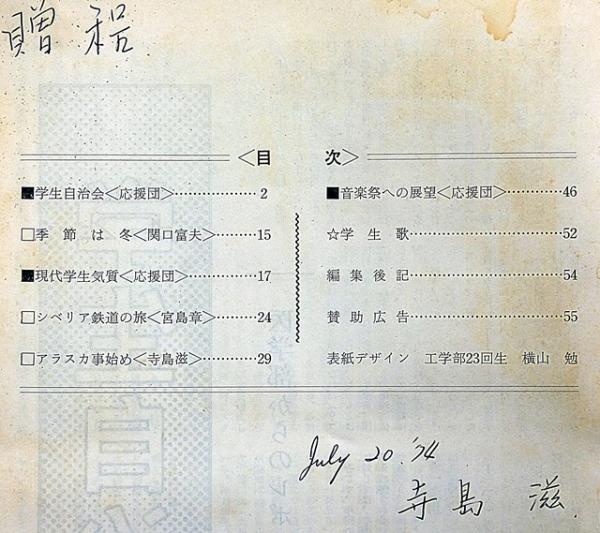 贈 呈
<目 次>
■学生自治会<応援団>………………2
□季節は冬<関口富夫>………15
■現代学生気質<応援団>…………17
□シベリア鉄道の旅<宮島章>………24
□アラスカ事始め<寺島滋>…………29
■音楽祭への展望<応援団>…………46
☆学生歌………………………52
編集後記………………………54
賛助広告………………………55
表紙デザイン 工学部23回生 横山 勉
医学部からのレポ
July 20. '74
寺島 滋